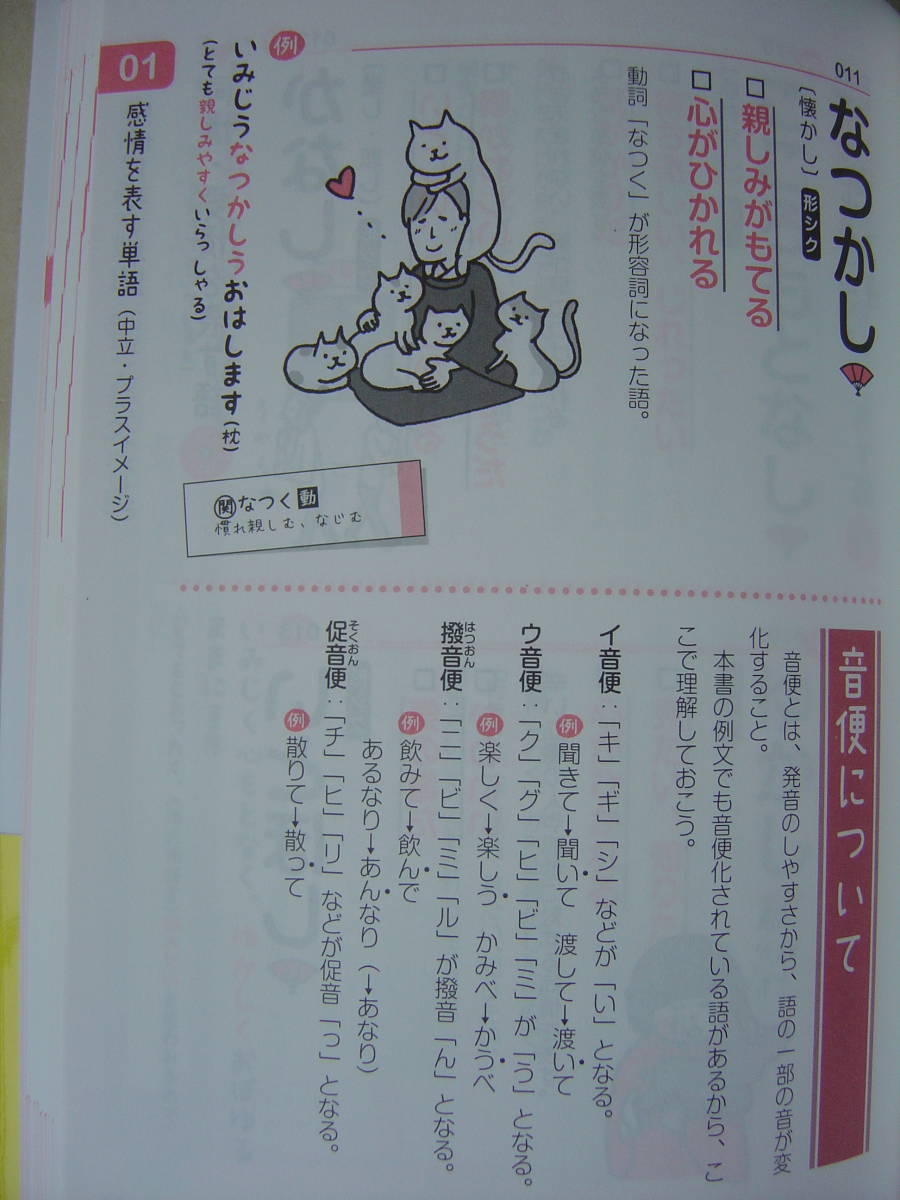 011
なつかし
〔懐かし〕 形シク
□ 親しみがもてる
□ 心がひかれる
動詞「なつく」が形容詞になった語。
例
いみじうなつかしうおはします（枕）
（とても親しみやすくいらっしゃる）
関 なつく 動
慣れ親しむ、なじむ
01 感情を表す単語（中立・プラスイメージ）
音便について
音便とは、発音のしやすさから、語の一部の音が変
化すること。
本書の例文でも音便化されている語があるから、こ
こで理解しておこう。
イ音便：「キ」「ギ」「シ」などが「い」となる。
例 聞きて→聞いて 渡して→渡いて
ウ音便：「ク」「グ」「ヒ」「ビ」「ミ」が「う」となる。
例 楽しく→楽しう かみべ→かうべ
撥音便（はつおん）：「ニ」「ビ」「ミ」「ル」が撥音「ん」となる。
例 飲みて→飲んで
あるなり→あんなり（→あなり）
促音便（そくおん）：「チ」「ヒ」「リ」などが促音「っ」となる。
例 散りて→散って